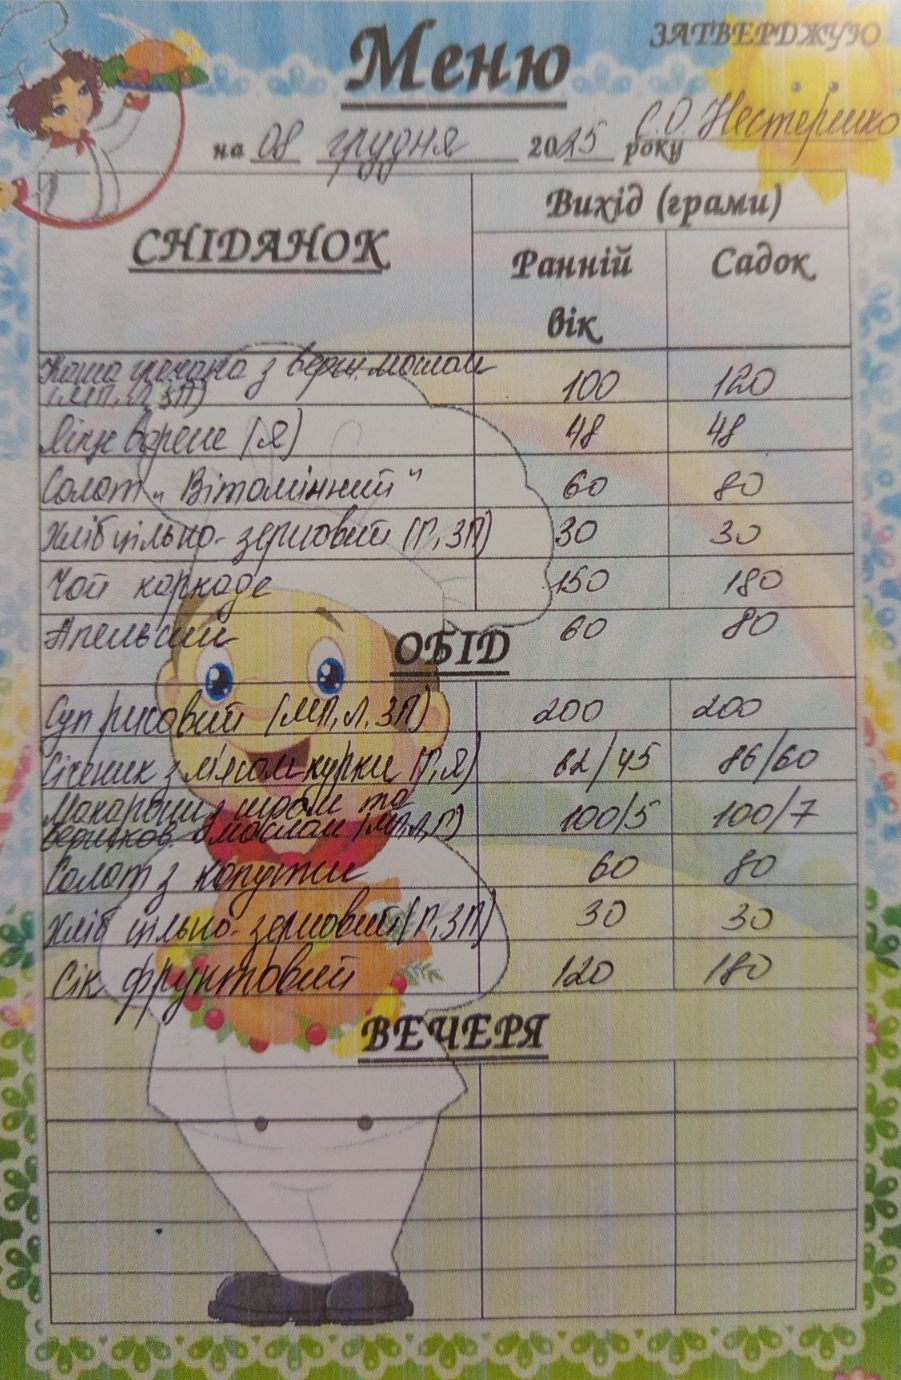 Меню
ЗАТВЕРДЖУЮ
С.О. Нестеренко
на 08 грудня 2025 року
СНІДАНОК
Вихід (грами)
Ранній вік
Садок
Каша гречана з верш. маслом 100 120
(МП, Л, ЗП)
Яйце варене (Я) 48 48
Салат „Вітамінний" 60 80
Хліб цільно-зерновий (Г, ЗП) 30 30
Чай каркаде 150 180
Апельсин 60 80
ОБІД
Суп рисовий (МП, Л, ЗП) 200 200
Січеник з м'ясом курки (Г, Я) 62/45 86/60
Макарони з сиром та 100/5 100/7
вершков. маслом (МП, Л, Г)
Салат з капусти 60 80
Хліб цільно-зерновий (Г, ЗП) 30 30
Сік фруктовий 120 180
ВЕЧЕРЯ